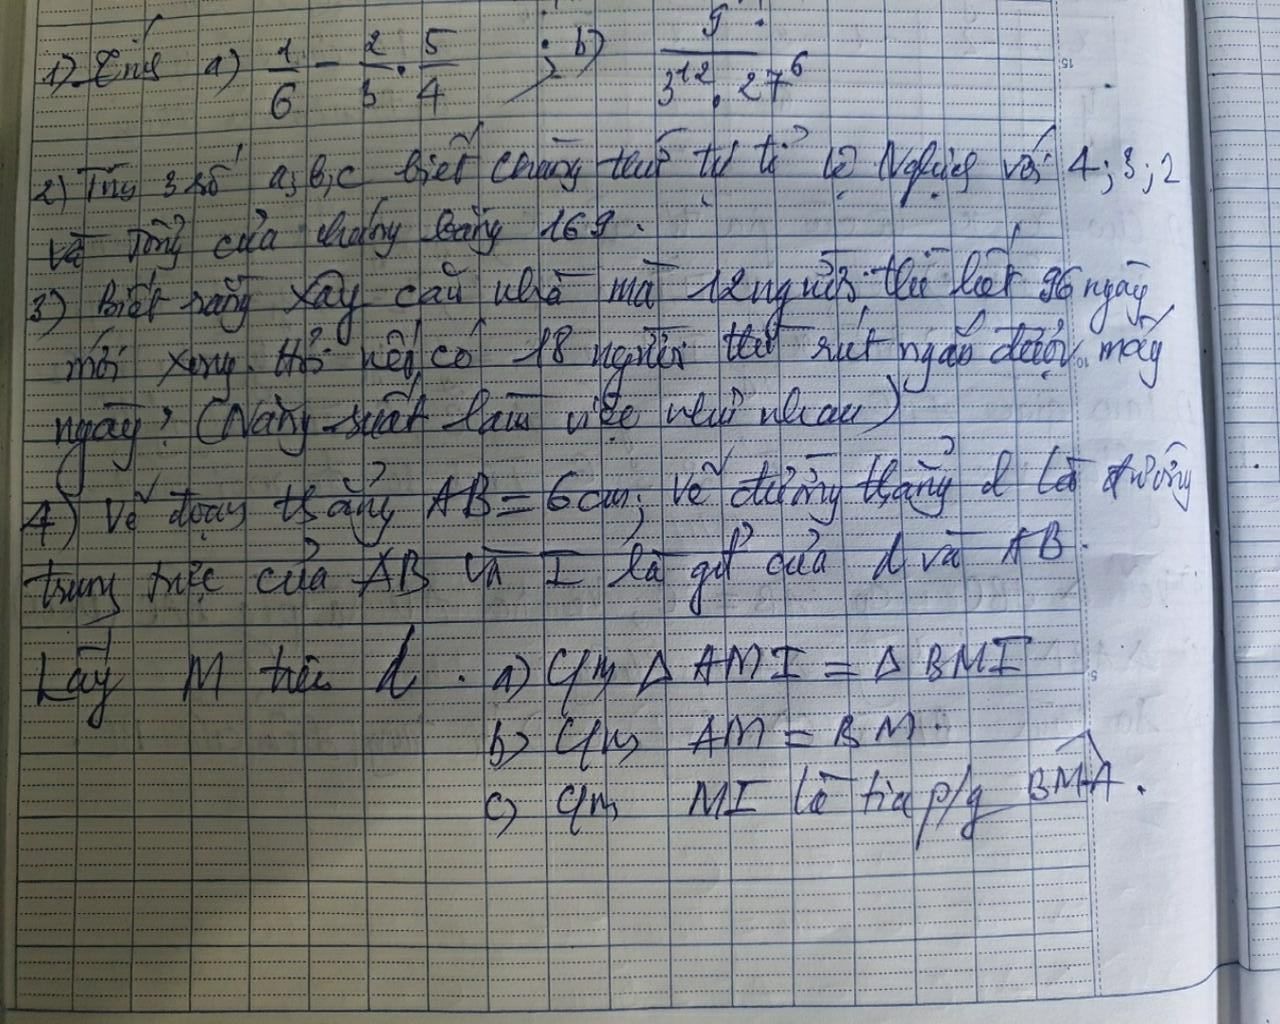 1) Tính a) 1/6 - 2/3 . 5/4 ; b) 9 / 3^12 . 27^6
2) Tìm 3 số a, b, c biết chúng thứ tự tỉ lệ Nghịch với 4; 3; 2
và Tổng của chúng bằng 169.
3) Biết rằng xây căn nhà mà 12 người thì hết 96 ngày
mới xong. Hỏi nếu có 18 người thì rút ngắn được mấy
ngày? (Năng suất làm việc như nhau)
4) Vẽ đoạn thẳng AB = 6cm; Vẽ đường thẳng d là đường
trung trực của AB và I là gđ của d và AB.
Lấy M trên d. a) C/m Δ AMI = Δ BMI
b) C/m AM = BM.
c) C/m MI là tia p/g BMA.